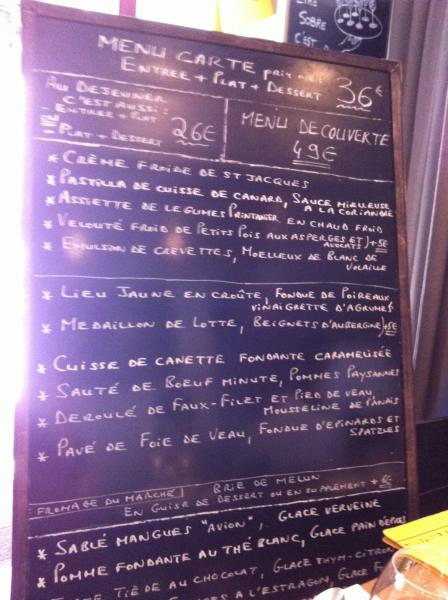 SOBRE
C'EST
MENU CARTE prix net
ENTREE + PLAT + DESSERT 36€
AU DEJEUNER
C'EST AUSSI :
- ENTREE + PLAT
ou
- PLAT + DESSERT 26€
MENU DECOUVERTE
49€
* CRÈME FROIDE DE ST JACQUES
* PASTILLA DE CUISSE DE CANARD, SAUCE MIELLEUSE
A LA CORIANDRE
* ASSIETTE DE LEGUMES PRINTANIER EN CHAUD FROID
* VELOUTÉ FROID DE PETITS POIS AUX ASPERGES ET
AVOCATS +5€
* EMULSION DE CREVETTES, MOELLEUX DE BLANC DE
VOLAILLE
* LIEU JAUNE EN CROÛTE, FONDUE DE POIREAUX
VINAIGRETTE D'AGRUMES
* MEDAILLON DE LOTTE, BEIGNETS D'AUBERGINE +5€
* CUISSE DE CANETTE FONDANTE CARAMELISÉE
* SAUTÉ DE BOEUF MINUTE, POMMES PAYSANNES
* DEROULÉ DE FAUX-FILET ET PIED DE VEAU,
MOUSSELINE DE PANAIS
* PAVÉ DE FOIE DE VEAU, FONDUE D'EPINARDS ET
SPATZLES
FROMAGE DU MARCHÉ BRIE DE MELUN
EN GUISE DE DESSERT OU EN SUPPLEMENT + 6€
* SABLÉ MANGUES "AVION", GLACE VERVEINE
* POMME FONDANTE AU THÉ BLANC, GLACE PAIN D'EPICES
TIÈDE AU CHOCOLAT, GLACE THYM-CITRON
A L'ESTRAGON, GLACE